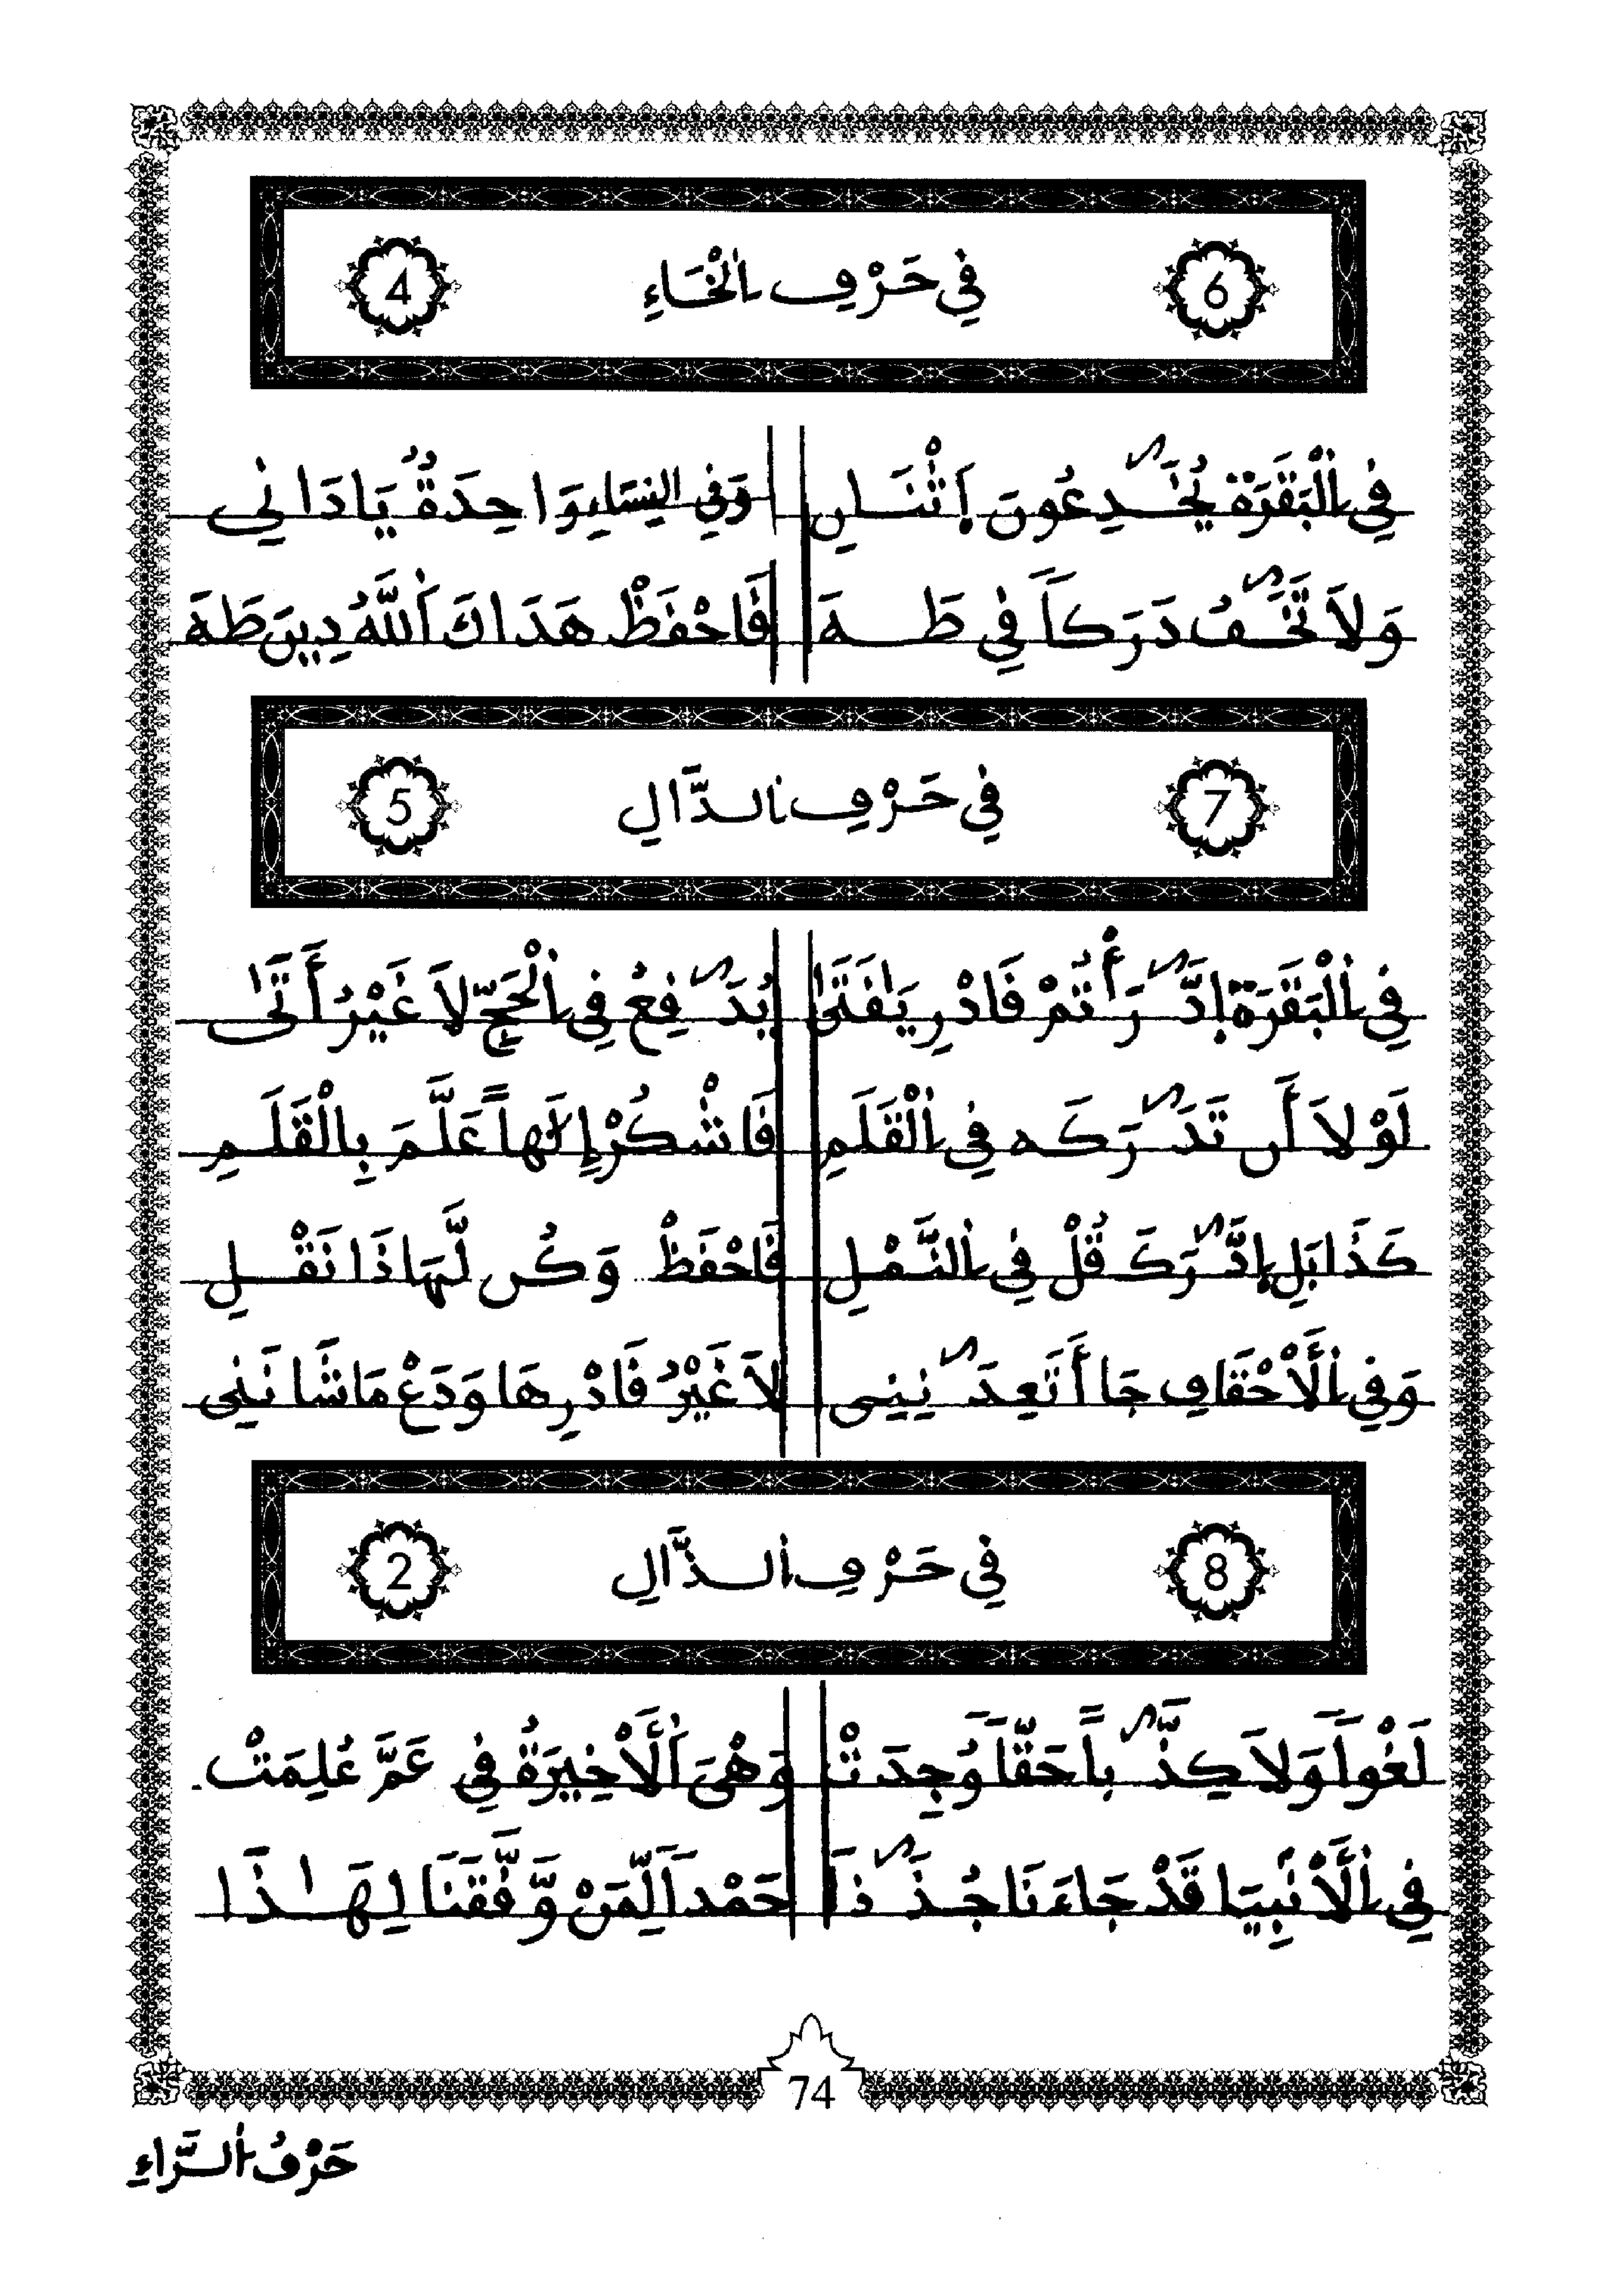 6 فِي حَرْفِ الْخَاءِ 4
فِي الْبَقَرَةْ يُخَٰدِعُونَ إَثْنَانِ وَفِي النِّسَاءِ وَاحِدَةٌ يَا دَانِي
وَلَا تَخَٰفُ دَرَكاً فِي طَهَ فَاحْفَظْ هَدَاكَ اللَّهُ دِينَ طَهَ
7 فِي حَرْفِ الدَّالِ 5
فِي الْبَقَرَةْ إدَّٰرَأْتُمْ فَادْرِ يَا فَتَىٰ يُدَٰفِعُ فِي الْحَجِّ لَا غَيْرُ أَتَىٰ
لَوْلَا أَن تَدَٰرَكَه فِي الْقَلَمِ فَاشْكُرْ إِلَٰهاً عَلَّمَ بِالْقَلَمِ
كَذَا بَلِ إدَّٰرَكَ قُلْ فِي النَّمْلِ فَاحْفَظْ وَكُن لَّهَا ذَا نَقْلِ
وَفِي الْأَحْقَافِ جَا أَتَعِدَٰنِنِي لَا غَيْرُ فَادْرِهَا وَدَعْ مَا شَانَنِي
8 فِي حَرْفِ الذَّالِ 2
لَغْواً وَلَا كِذَّٰباً حَقّاً وُجِدَتْ وَهْيَ الْأَخِيرَةُ فِي عَمَّ عُلِمَتْ
فِي الْأَنْبِيَا قَدْ جَاءَنَا جُذَٰذاً حَمْداً لِّمَنْ وَّفَّقَنَا لِهَٰذَا
74
حَرْفُ الرَّاءِ